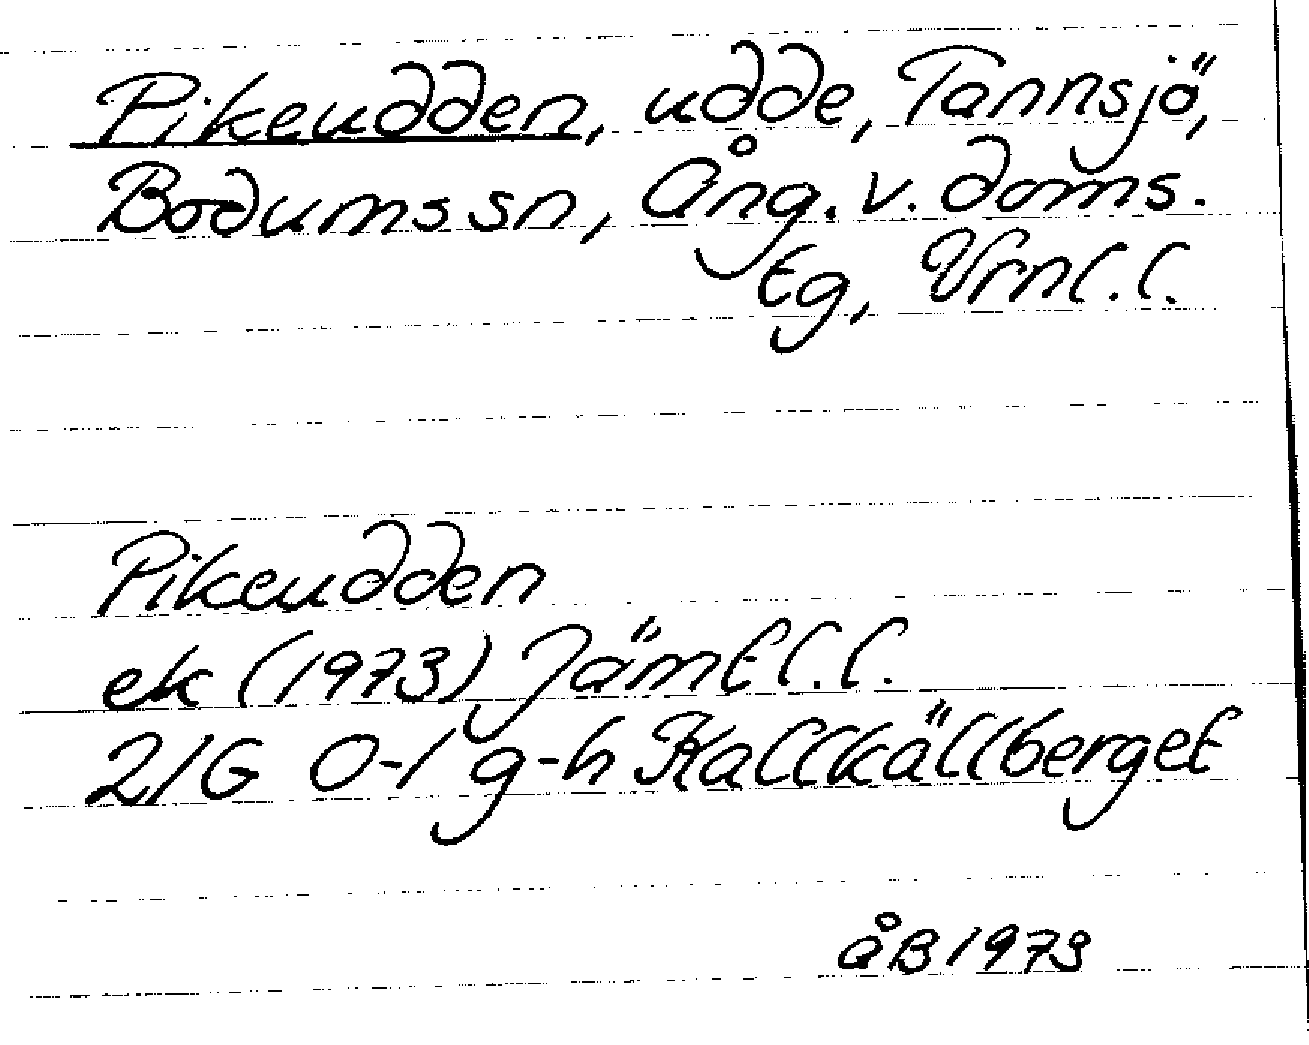 Pikeudden, udde, Tannsjö,
Bodums sn, Ång. v. doms.
tg, Vrnl.l.
Pikeudden
ek (1973) Jämtl.l.
21G 0-1 g-h Kallkällberget
åB 1973